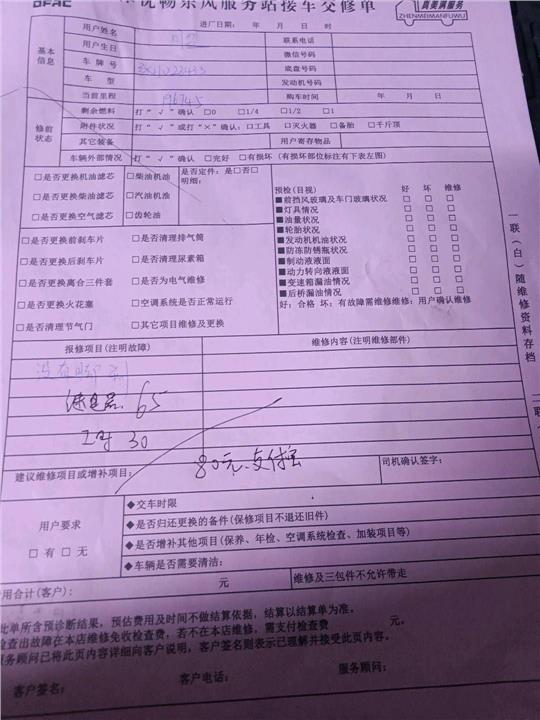 DFAC
优畅东风服务站接车交修单
真美满服务
ZHENMEIMANFUWU
进厂日期: 年 月 日 时
基本信息
用户姓名 联系电话
用户生日 微信号码
车牌号 底盘号码
车型 发动机号码
当前里程 196745 购车时间 年 月 日
修前状态
剩余燃料 打“√”确认 □0 □1/4 □1/2 □1
附件状况 打“√”或打“×”确认:□工具 □灭火器 □备胎 □千斤顶
其它装备 用户寄存物品
车辆外部情况 打“√”确认 □完好 □有损坏(有损坏部位标注有下表左图)
□是否更换机油滤芯 □柴油机油 是否定件:是□否□
明细:
□是否更换柴油滤芯 □汽油机油
□是否更换空气滤芯 □齿轮油
□是否更换前刹车片 □是否清理排气筒
□是否更换后刹车片 □是否清理尿素箱
□是否更换离合三件套 □是否为电气维修
□是否更换火花塞 □空调系统是否正常运行
□是否清理节气门 □其它项目维修及更换
预检(目视) 好 坏 维修
■前挡风玻璃及车门玻璃状况 □ □ □
■灯具情况 □ □ □
■油量状况 □ □ □
■轮胎状况 □ □ □
■发动机机油状况 □ □ □
■防冻防锈瓶状况 □ □ □
■制动液液面 □ □ □
■动力转向液液面 □ □ □
■变速箱漏油情况 □ □ □
■后桥漏油情况 □ □ □
好:合格 坏:有故障需维修维修:用户确认维修
一联(白)随维修资料存档
报修项目(注明故障) 维修内容(注明维修部件)
没有
继电器 65
工时 30
80元 支付宝
建议维修项目或增补项目: 司机确认签字:
用户要求
□有 □无
◆交车时限
◆是否归还更换的备件(保修项目不退还旧件)
◆是否增补其他项目(保养、年检、空调系统检查、加装项目等)
◆车辆是否需要清洁:
费用合计(客户): 元 维修及三包件不允许带走
此单所含预诊断结果,预估费用及时间不做结算依据,结算以结算单为准。
检查出故障在本店维修免收检查费,若不在本店维修,需支付检查费 元。
服务顾问已将此页内容详细向客户说明,客户签名则表示已理解并接受此页内容。
客户签名: 客户电话: 服务顾问: